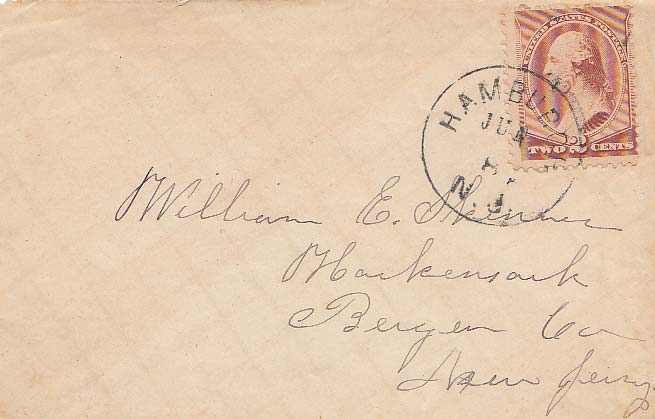 UNITED STATES POSTAGE
TWO 2 CENTS
HAMBURG
JUN
8
N.J.
William E. Skinner
Hackensack
Bergen Co
New Jersey